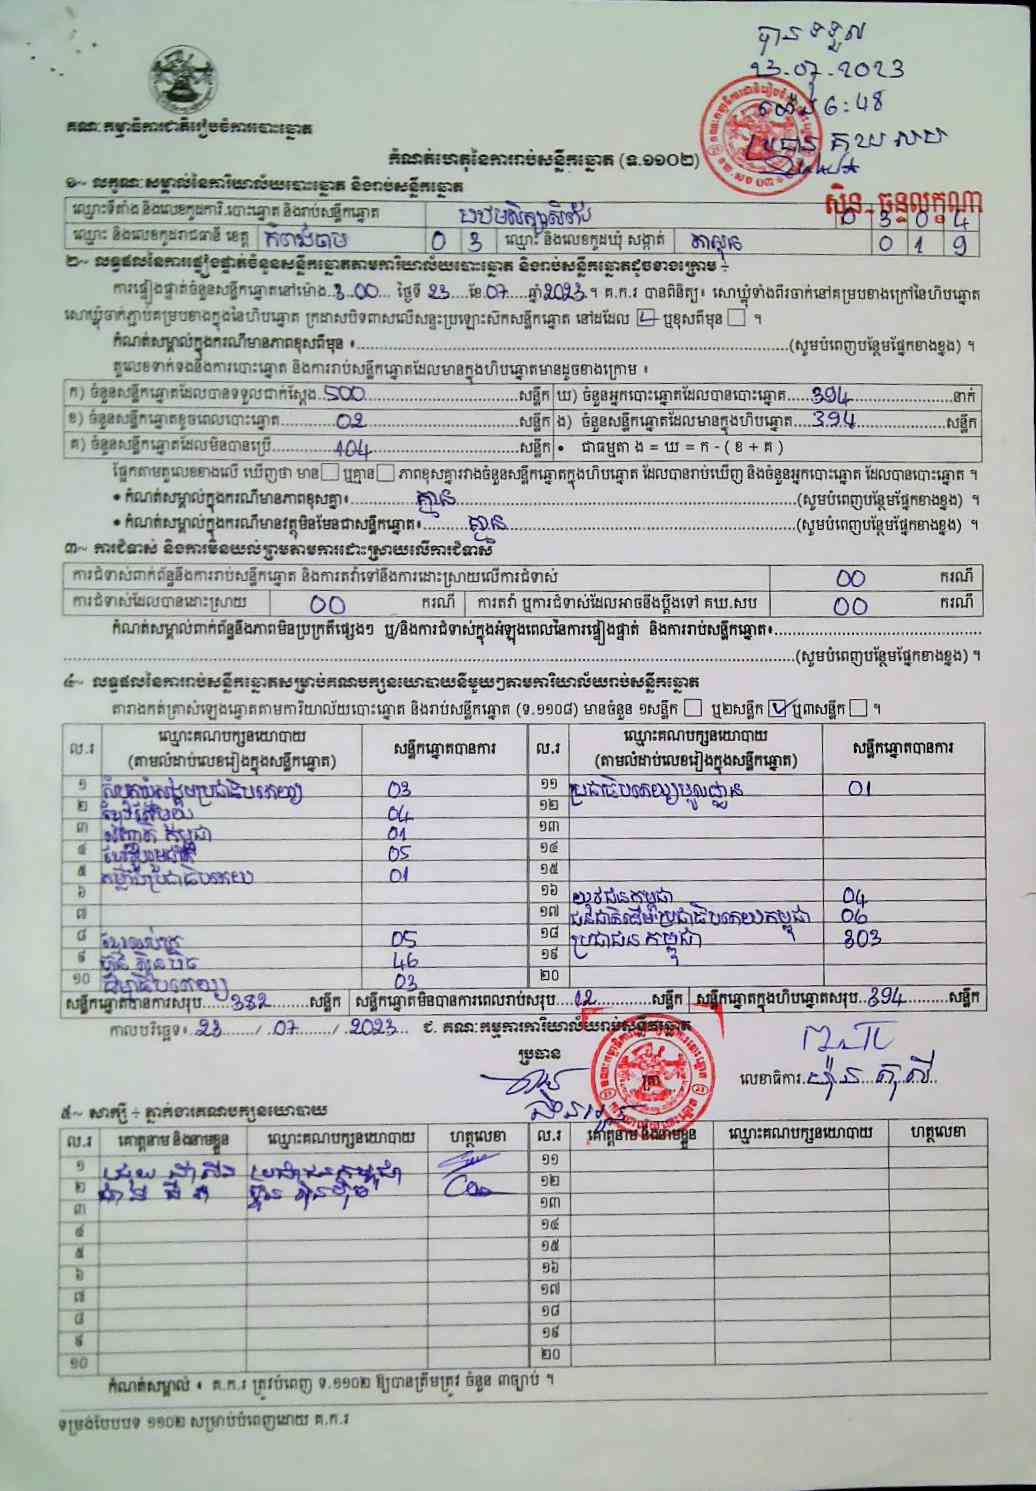 បានទទួល
23.07.2023
ម៉ោង 6:48
ប្រធាន គ.ឃ.សប
គណៈកម្មាធិការជាតិរៀបចំការបោះឆ្នោត
កំណត់ហេតុនៃការរាប់សន្លឹកឆ្នោត (ទ.១១០២)
ស៊ិន ចន្ទលក្ខណា
១~ លក្ខណៈសម្គាល់នៃការិយាល័យបោះឆ្នោត និងរាប់សន្លឹកឆ្នោត
ឈ្មោះទីតាំង និងលេខកូដការិ.បោះឆ្នោត និងរាប់សន្លឹកឆ្នោត 0 3 0 4
ឈ្មោះ និងលេខកូដរាជធានី ខេត្ត កំពង់ចាម 0 3 ឈ្មោះ និងលេខកូដឃុំ សង្កាត់ 0 1 9
២~ លទ្ធផលនៃការផ្ទៀងផ្ទាត់ចំនួនសន្លឹកឆ្នោតតាមការិយាល័យបោះឆ្នោត និងរាប់សន្លឹកឆ្នោតដូចខាងក្រោម ÷
ការផ្ទៀងផ្ទាត់ចំនួនសន្លឹកឆ្នោតនៅម៉ោង.3.00... ថ្ងៃទី 23....ខែ.07.....ឆ្នាំ2023.។ គ.ក.រ បានពិនិត្យ៖ សោឃ្លុំទាំងពីរចាក់នៅគម្របខាងក្រៅនៃហិបឆ្នោត
សោឃ្លុំចាក់ភ្ជាប់គម្របខាងក្នុងនៃហិបឆ្នោត ក្រដាសបិទពាសលើសន្ទះប្រឡោះស៊កសន្លឹកឆ្នោត នៅដដែល ឬខុសពីមុន ។
កំណត់សម្គាល់ក្នុងករណីមានភាពខុសពីមុន ៖........(សូមបំពេញបន្ថែមផ្នែកខាងខ្នង) ។
តួលេខទាក់ទងនឹងការបោះឆ្នោត និងការរាប់សន្លឹកឆ្នោតដែលមានក្នុងហិបឆ្នោតមានដូចខាងក្រោម ៖
ក) ចំនួនសន្លឹកឆ្នោតដែលបានទទួលជាក់ស្តែង.500........សន្លឹក ឃ) ចំនួនអ្នកបោះឆ្នោតដែលបានបោះឆ្នោត....394........នាក់
ខ) ចំនួនសន្លឹកឆ្នោតខូចពេលបោះឆ្នោត........02........សន្លឹក ង) ចំនួនសន្លឹកឆ្នោតដែលមានក្នុងហិបឆ្នោត....394........សន្លឹក
គ) ចំនួនសន្លឹកឆ្នោតដែលមិនបានប្រើ........104........សន្លឹក • ជាធម្មតា ង = ឃ = ក - ( ខ + គ )
ផ្អែកតាមតួលេខខាងលើ ឃើញថា មាន ឬគ្មាន ភាពខុសគ្នារវាងចំនួនសន្លឹកឆ្នោតក្នុងហិបឆ្នោត ដែលបានរាប់ឃើញ និងចំនួនអ្នកបោះឆ្នោត ដែលបានបោះឆ្នោត ។
• កំណត់សម្គាល់ក្នុងករណីមានភាពខុសគ្នា៖........គ្មាន........(សូមបំពេញបន្ថែមផ្នែកខាងខ្នង) ។
• កំណត់សម្គាល់ក្នុងករណីមានវត្ថុមិនមែនជាសន្លឹកឆ្នោត៖........គ្មាន........(សូមបំពេញបន្ថែមផ្នែកខាងខ្នង) ។
៣~ ការជំទាស់ និងការមិនយល់ព្រមតាមការដោះស្រាយលើការជំទាស់
ការជំទាស់ពាក់ព័ន្ធនឹងការរាប់សន្លឹកឆ្នោត និងការតវ៉ាទៅនឹងការដោះស្រាយលើការជំទាស់ 00 ករណី
ការជំទាស់ដែលបានដោះស្រាយ 00 ករណី ការតវ៉ា ឬការជំទាស់ដែលអាចនឹងប្តឹងទៅ គឃ.សប 00 ករណី
កំណត់សម្គាល់ពាក់ព័ន្ធនឹងភាពមិនប្រក្រតីផ្សេងៗ ឬ/និងការជំទាស់ក្នុងអំឡុងពេលនៃការផ្ទៀងផ្ទាត់ និងការរាប់សន្លឹកឆ្នោត៖........
........(សូមបំពេញបន្ថែមផ្នែកខាងខ្នង) ។
៤~ លទ្ធផលនៃការរាប់សន្លឹកឆ្នោតសម្រាប់គណបក្សនយោបាយនីមួយៗតាមការិយាល័យរាប់សន្លឹកឆ្នោត
តារាងកត់ត្រាសំឡេងឆ្នោតតាមការិយាល័យបោះឆ្នោត និងរាប់សន្លឹកឆ្នោត (ទ.១១០៨) មានចំនួន ១សន្លឹក ឬ២សន្លឹក ឬ៣សន្លឹក ។
ល.រ ឈ្មោះគណបក្សនយោបាយ (តាមលំដាប់លេខរៀងក្នុងសន្លឹកឆ្នោត) សន្លឹកឆ្នោតបានការ ល.រ ឈ្មោះគណបក្សនយោបាយ (តាមលំដាប់លេខរៀងក្នុងសន្លឹកឆ្នោត) សន្លឹកឆ្នោតបានការ
១ សំបុកឃ្មុំសង្គមប្រជាធិបតេយ្យ 03 ១១ ប្រជាធិបតេយ្យមូលដ្ឋាន 01
២ 04 ១២
៣ កម្ពុជា 01 ១៣
៤ ខ្មែររួបរួមជាតិ 05 ១៤
៥ កម្លាំងប្រជាធិបតេយ្យ 01 ១៥
៦ ១៦ យុវជនកម្ពុជា 04
៧ ១៧ ជនជាតិដើមប្រជាធិបតេយ្យកម្ពុជា 06
៨ 05 ១៨ ប្រជាជនកម្ពុជា 303
៩ ហ៊្វុនស៊ិនប៉ិច 46 ១៩
១០ ធម្មាធិបតេយ្យ 03 ២០
សន្លឹកឆ្នោតបានការសរុប....382........សន្លឹក សន្លឹកឆ្នោតមិនបានការពេលរាប់សរុប....12........សន្លឹក សន្លឹកឆ្នោតក្នុងហិបឆ្នោតសរុប..394........សន្លឹក
កាលបរិច្ឆេទ៖ 23....../ .07....../ .2023... ជ. គណៈកម្មការការិយាល័យរាប់សន្លឹកឆ្នោត
ប្រធាន
លេខាធិការ.
៥~ សាក្សី ÷ ភ្នាក់ងារគណបក្សនយោបាយ
ល.រ គោត្តនាម និងនាមខ្លួន ឈ្មោះគណបក្សនយោបាយ ហត្ថលេខា ល.រ គោត្តនាម និងនាមខ្លួន ឈ្មោះគណបក្សនយោបាយ ហត្ថលេខា
១ ប្រជាជនកម្ពុជា ១១
២ ហ៊្វុនស៊ិនប៉ិច ១២
៣ ១៣
៤ ១៤
៥ ១៥
៦ ១៦
៧ ១៧
៨ ១៨
៩ ១៩
១០ ២០
កំណត់សម្គាល់ ៖ គ.ក.រ ត្រូវបំពេញ ទ.១១០២ ឱ្យបានត្រឹមត្រូវ ចំនួន ៣ច្បាប់ ។
ទម្រង់បែបបទ ១១០២ សម្រាប់បំពេញដោយ គ.ក.រ